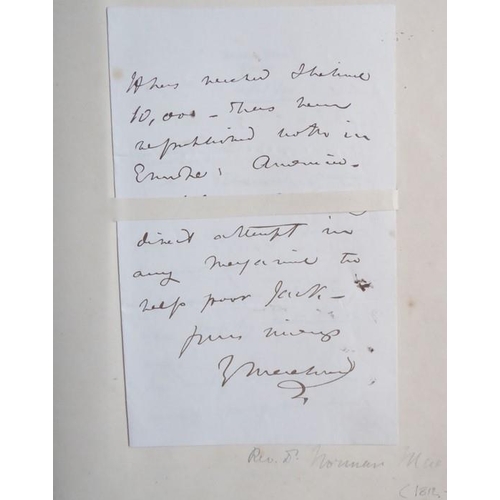 It has reached I believe
10,000 – & has been
republished both in
Europe & America –
direct attempt in
any magazine to
help poor Jack –
yours
Rev. Dr. Norman Mac
(1812